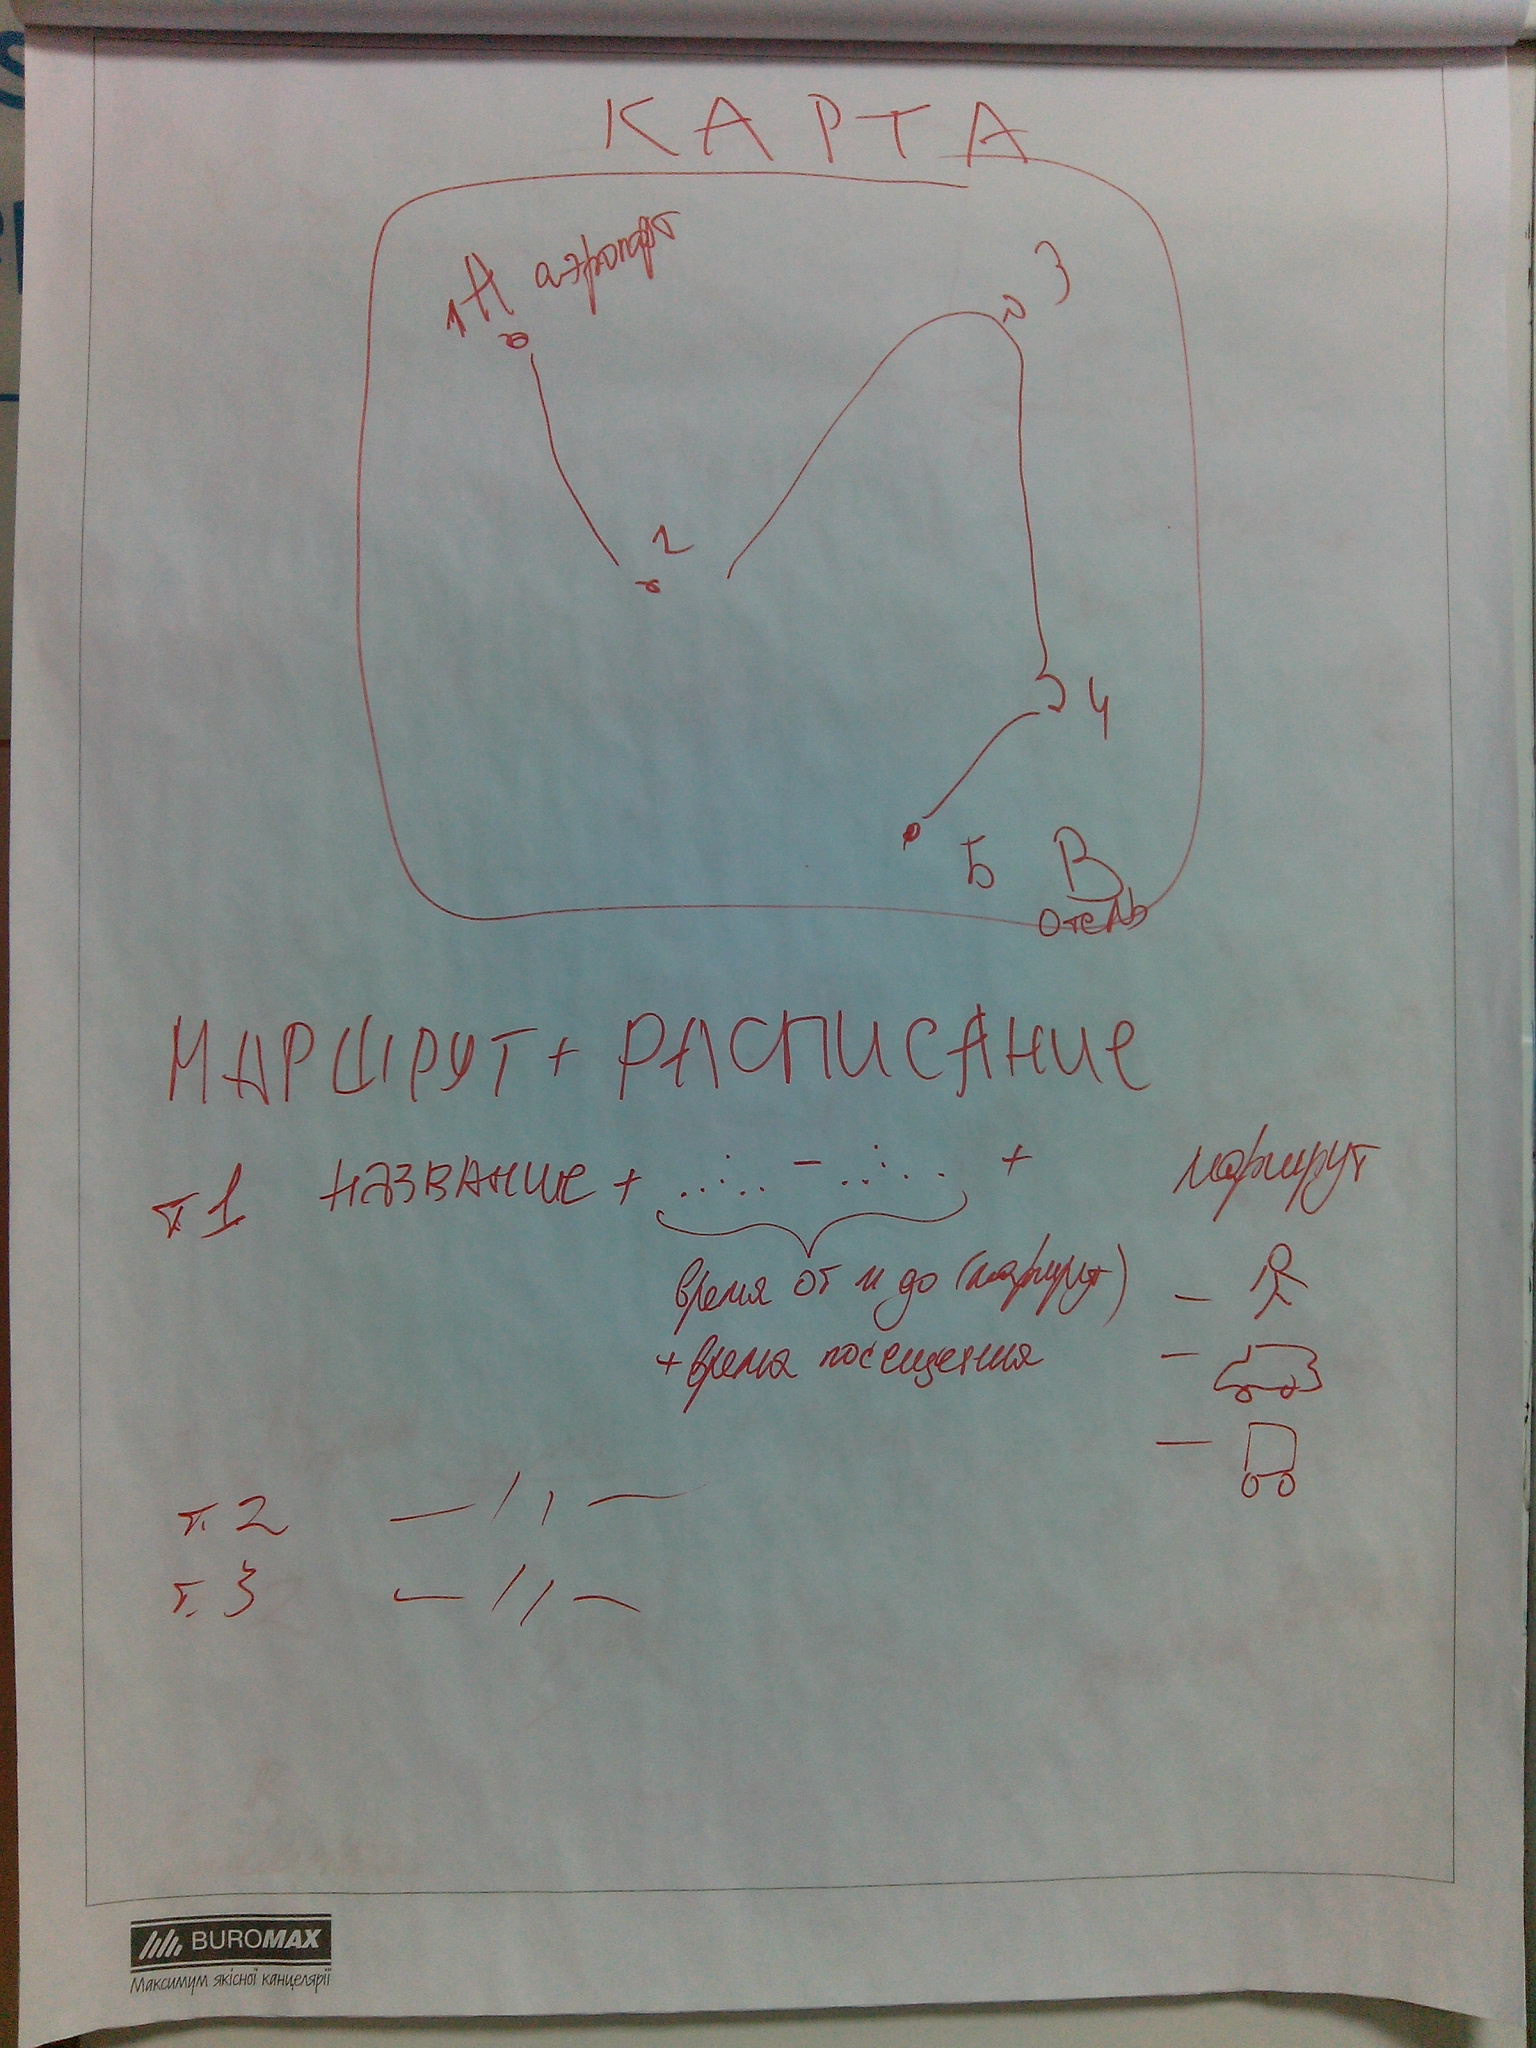 КАРТА
1 А аэропорт
3
2
4
5 В
отель
МАРШРУТ + РАСПИСАНИЕ
т1 НАЗВАНИЕ + ..:.. - ..:.. + маршрут
время от и до (маршрут)
+ время посещения
т. 2 — // —
т. 3 — // —
BUROMAX
Максимум якісної канцелярії